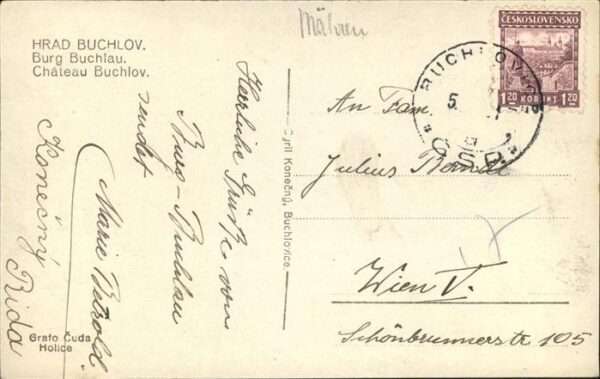 Mähren
HRAD BUCHLOV.
Burg Buchlau.
Château Buchlov.
Herzliche Grüße von
Burg-Buchlau
sendet
Marie
Konečný
Grafo Čuda
Holice
Cyril Konečný, Buchlovice.
ČESKOSLOVENSKO
1.20 KORUNY 1.20
BUCHLOV
5
ČSP
An Fam.
Julius
Wien V.
Schönbrunnerstr 105